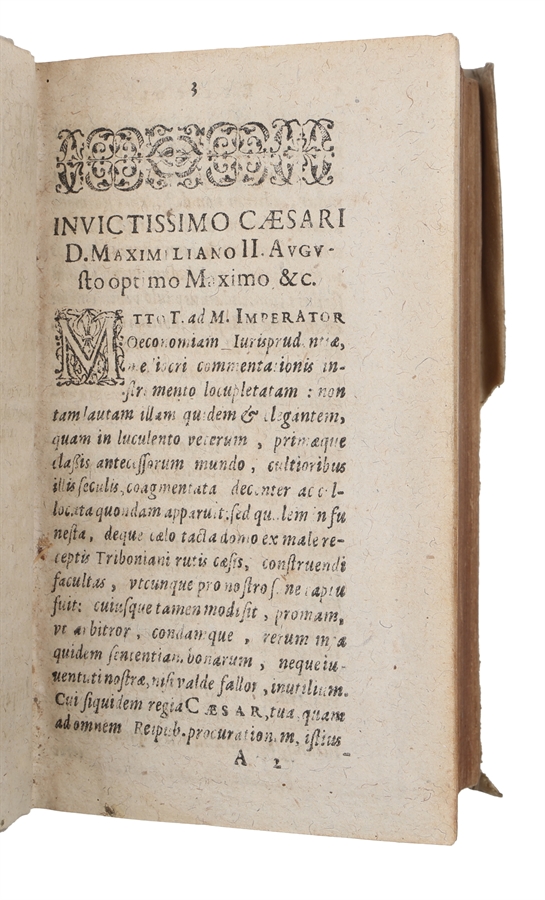 3
INVICTISSIMO CÆSARI
D. MAXIMILIANO II. AVGV-
sto optimo Maximo &c.
MITTO T. ad M. IMPERATOR
Oeconomiam Iurisprudentiæ,
mediocri commentationis in-
strumento locupletatam : non
tam lautam illam quidem & elegantem,
quam in luculento veterum , primæque
classis antecessorum mundo , cultioribus
illis seculis, coagmentata decenter ac col-
locata quondam apparuit; sed qualem in fu
nesta, deque cælo tacta domo ex male re-
ceptis Triboniani rutis cæsis, construendi
facultas , vtcunque pro nostro sane captu
fuit: cuiusque tamen modi sit , promam,
vt arbitror , condamque , rerum mea
quidem sententiam bonarum , neque iu-
uentuti nostræ, nisi valde fallor , inutilium.
Cui siquidem regia CÆSAR, tua, quam
ad omnem Reipub. procurationem, istius
A 2